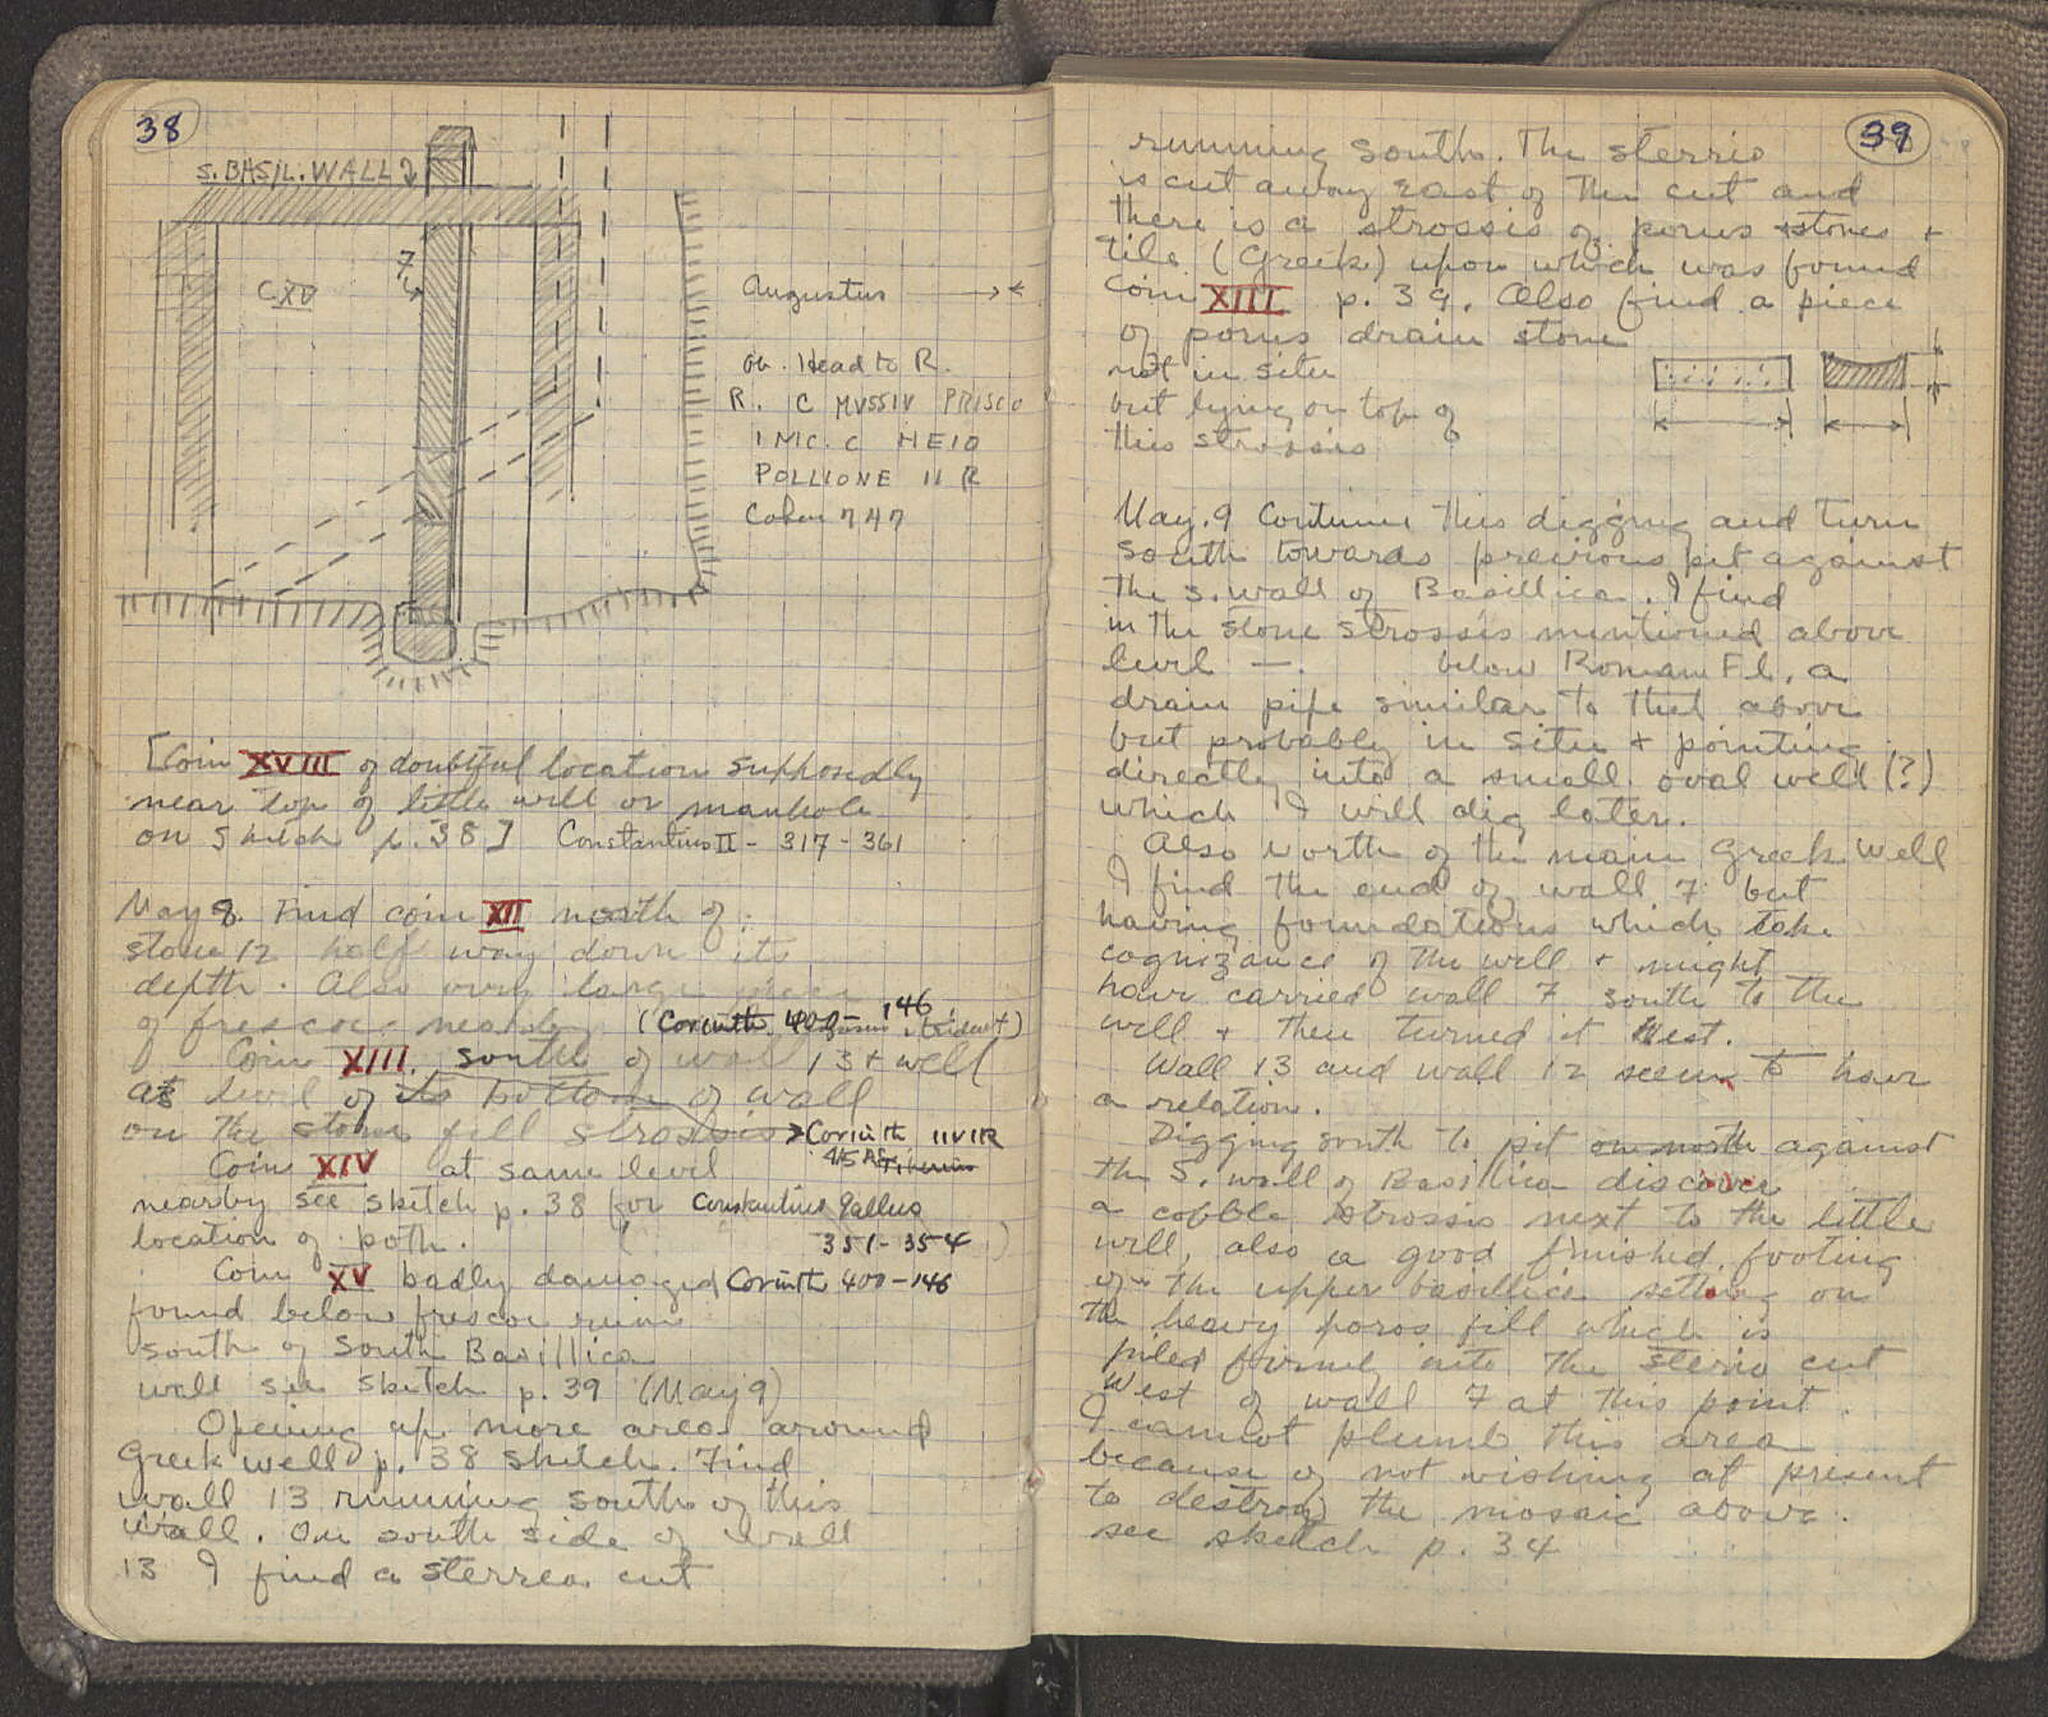 38
S. BASIL. WALL
7
C XV
Augustus
Ob. Head to R.
R. C MVSSIV PRISCO
IMC. C HEIO
POLLIONE II R
Cohen 747
[Coin XVIII of doubtful location supposedly
near top of little well or manhole
on sketch p. 38] Constantius II - 317-361
May 8. Find coin XII north of
stone 12 half way down its
depth. Also very large piece
of frescoe nearby (Corinth 400-146 trident)
Coin XIII. south of wall 13 + well
at level of its bottom of wall
on the stones fill strossis Corinth IIVIR
Tiberius
Coin XIV at same level
nearby see sketch p. 38 for Constantius Gallus
location of both. 351-354
Coin XV badly damaged Corinth 400-146
found below frescoe ruin
south of South Basillica
wall see sketch p. 39 (May 9)
Opening up more area around
Greek well p. 38 sketch. Find
wall 13 running south of this
wall. On south side of wall
13 I find a sterreo cut
39
running south. The sterrio
is cut away east of the cut and
there is a strossis of porus stones +
tile (Greek) upon which was found
Coin XIII p. 39. Also find a piece
of porus drain stone
not in situ
but lying on top of
this strossis
May. 9 Continue this digging and turn
south towards previous pit against
the S. wall of Basillica. I find
in the stone strossis mentioned above
level —. below Roman Fl. a
drain pipe similar to that above
but probably in situ + pointing
directly into a small oval well (?)
which I will dig later.
Also north of the main Greek well
I find the end of wall 7 but
having foundations which take
cognizance of the well + might
have carried wall 7 south to the
well + then turned it West.
Wall 13 and wall 12 seem to have
a relation.
Digging south to pit on north against
the S. wall of Basillica discover
a cobble strossis next to the little
well, also a good finished footing
of the upper basillica setting on
the heavy poros fill which is
piled firmly into the sterio cut
West of wall 7 at this point.
I cannot plumb this area
because of not wishing at present
to destroy the mosaic above.
see sketch p. 34